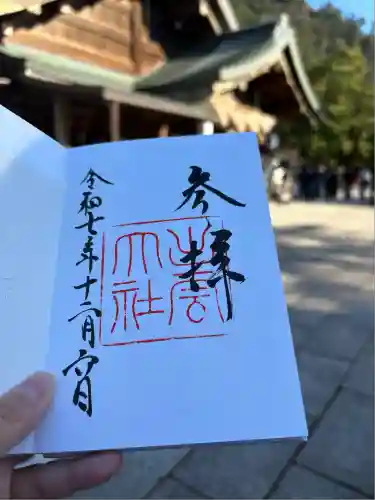 参拝
出雲
大社
令和七年十二月六日